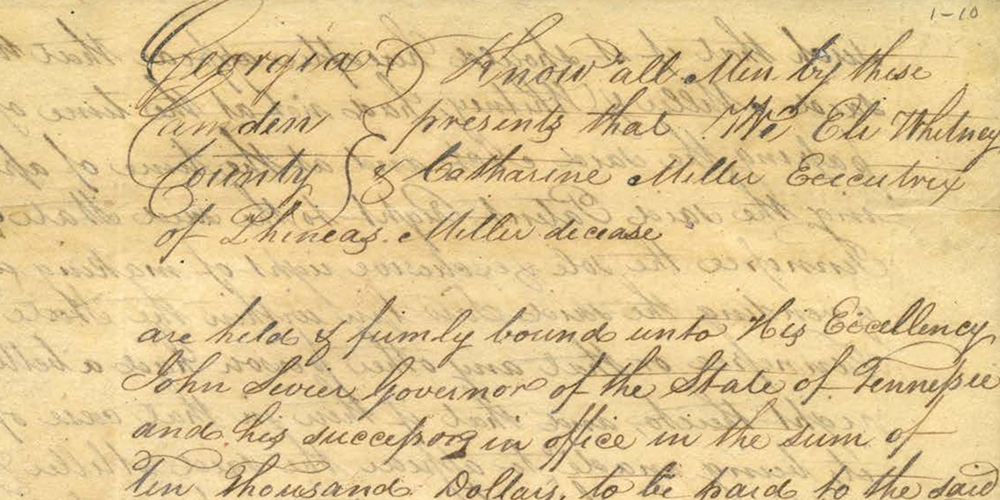 1-10
Georgia } Know all Men by these
Camden } presents that We Eli Whitney
County } & Catharine Miller Executrix
of Phineas Miller decease
are held & firmly bound unto His Excellency
John Sevier Governor of the State of Tennessee
and his successors in office in the sum of
Ten Thousand Dollars, to be paid to the said